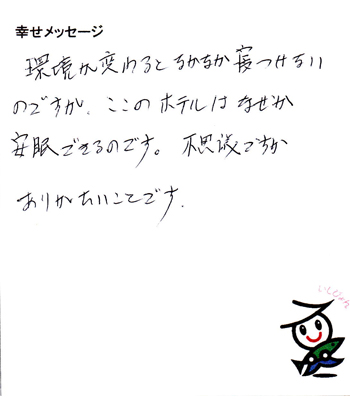 幸せメッセージ
環境が変わるとなかなか寝つけない
のですが、ここのホテルはなぜか
安眠できるのです。不思議ですが
ありがたいことです.